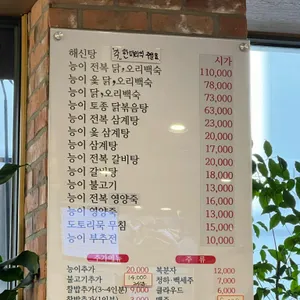 해신탕 시가
능이 전복 닭,오리백숙 110,000
능이 옻 닭,오리백숙 78,000
능이 닭,오리백숙 73,000
능이 토종 닭볶음탕 63,000
능이 전복 삼계탕 23,000
능이 옻 삼계탕 20,000
능이 삼계탕 17,000
능이 전복 갈비탕 20,000
능이 갈비탕 18,000
능이 불고기 13,000
능이 전복 영양죽 16,000
능이 영양죽 13,000
도토리묵 무침 15,000
능이 부추전 10,000
추가메뉴
능이추가 20,000
불고기추가
찹쌀추가(3~4인분)
찹쌀추가(1인분) 3,000
주 류
복분자 12,000
청하·백세주 7,000
클라우드 6,000
맥주